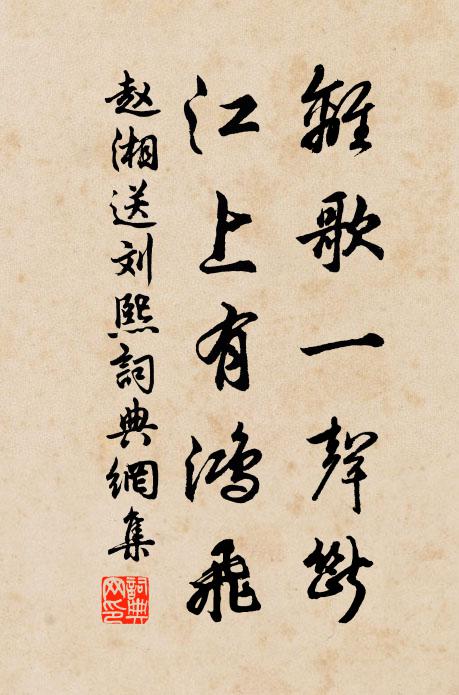 離歌一聲斷
江上有鴻飛
赵湘送刘熙詞典網集
詞典網印